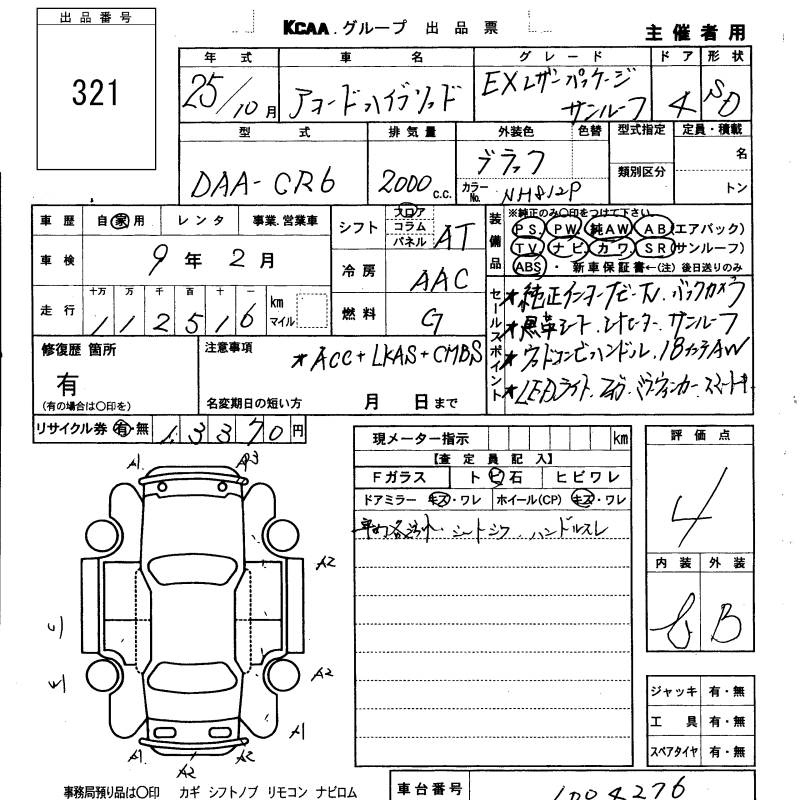 出品番号
321
KCAA.グループ 出品票
主催者用
年式 車名 グレード ドア 形状
25/10月 アコードハイブリッド EXレザーパッケージ サンルーフ 4 SD
型式 排気量 外装色 色替 型式指定 定員・積載
DAA-CR6 2000c.c. ブラック 名
カラーNo. NH812P 類別区分 トン
車歴 自家用 レンタ 事業.営業車
シフト フロア コラム パネル AT
装備品 ※純正のみ〇印をつけて下さい
PS. PW. 純AW AB(エアバック)
TV ナビ カワ SR(サンルーフ)
ABS ・ 新車保証書←(注) 後日送りのみ
車検 9年2月
冷房 AAC
走行 十万 万 千 百 十 一
112516 km マイル
燃料 G
セールスポイント
★純正インターナビ・TV.バックカメラ
★黒革シート.シートヒーター.サンルーフ
★ウッドコンビハンドル.18インチAW
★LEDライト
修復歴 箇所
有
(有の場合は〇印を)
注意事項
★ACC+LKAS+CMBS
名変期日の短い方 月 日まで
リサイクル券 有・無 13370円
現メーター指示 km
【査定員記入】
Fガラス トビ石 ヒビワレ
ドアミラー キズ・ワレ ホイール(CP) キズ・ワレ
シートシワ ハンドルスレ
評価点
4
内装 外装
B
A1 A2 A2 A1 A1 A2 A2
ジャッキ 有・無
工具 有・無
スペアタイヤ 有・無
事務局預り品は〇印 カギ シフトノブ リモコン ナビロム
車台番号